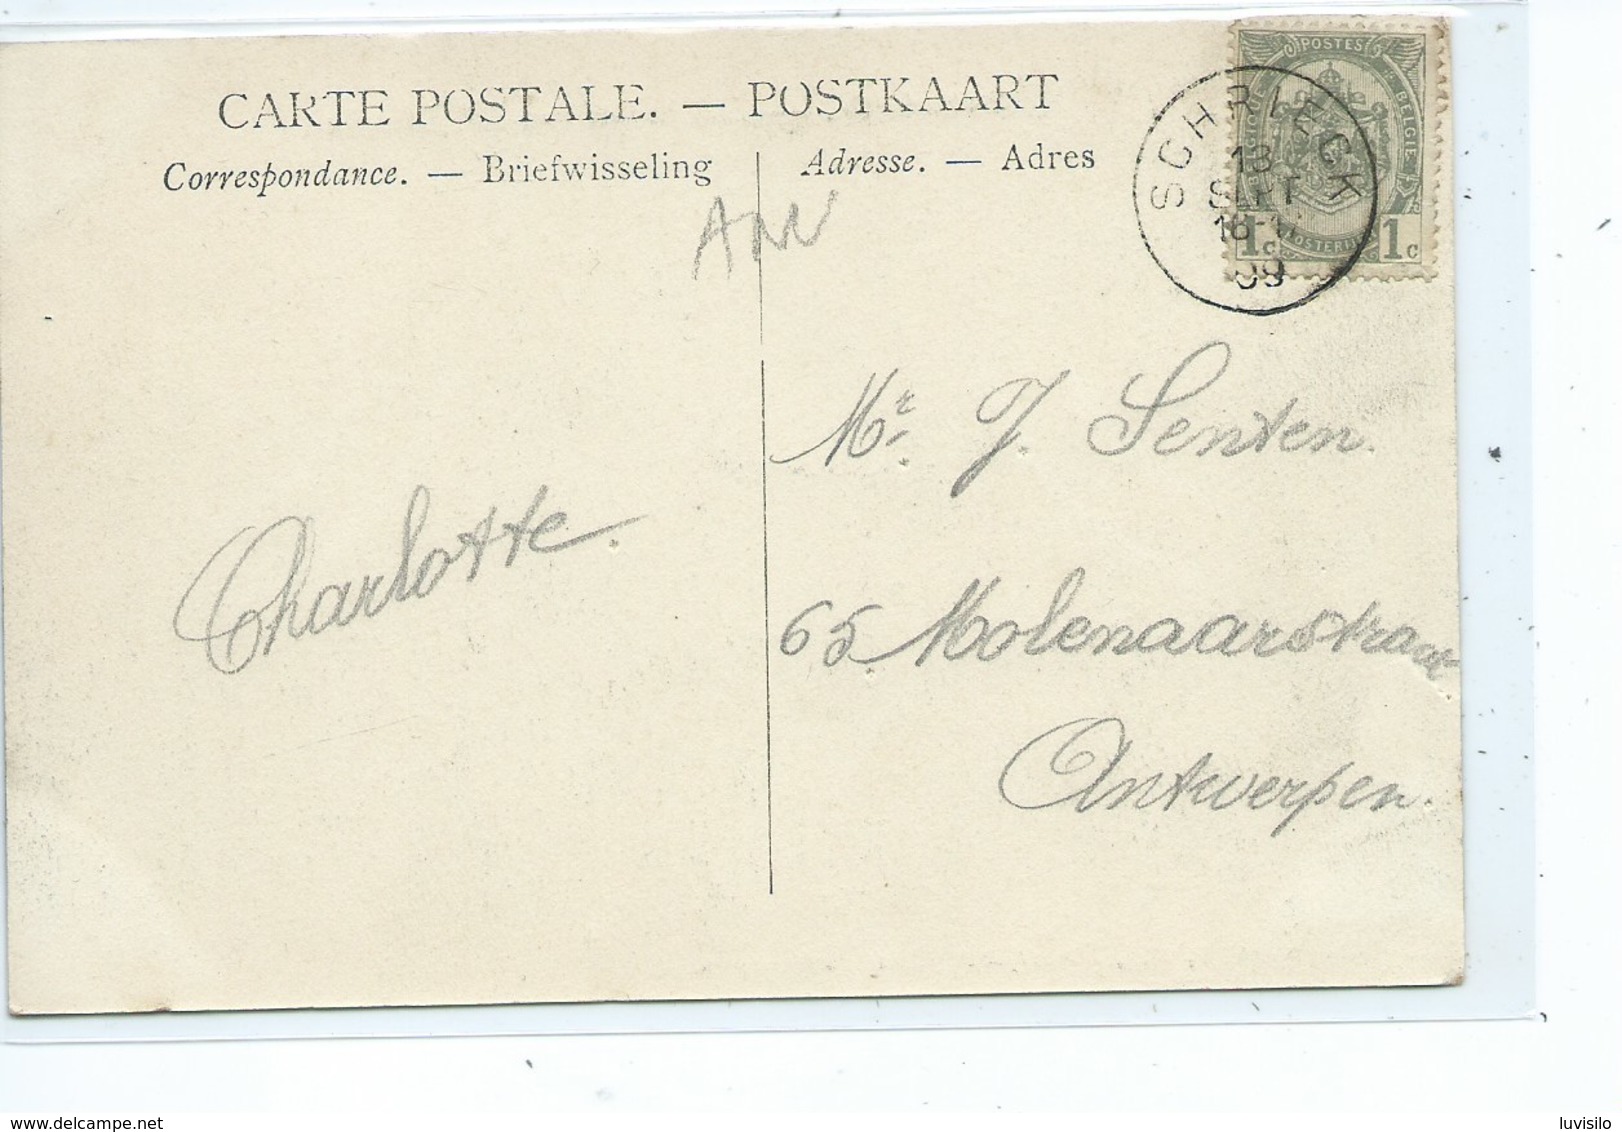 CARTE POSTALE. — POSTKAART
Correspondance. — Briefwisseling
Adresse. — Adres
POSTES
BELGIE
1c 1c
SCHRIECK
13
SEPT
09
Mr. J. Senten.
Charlotte.
65 Molenaarstraat
Antwerpen.
delcampe.net
luvisilo